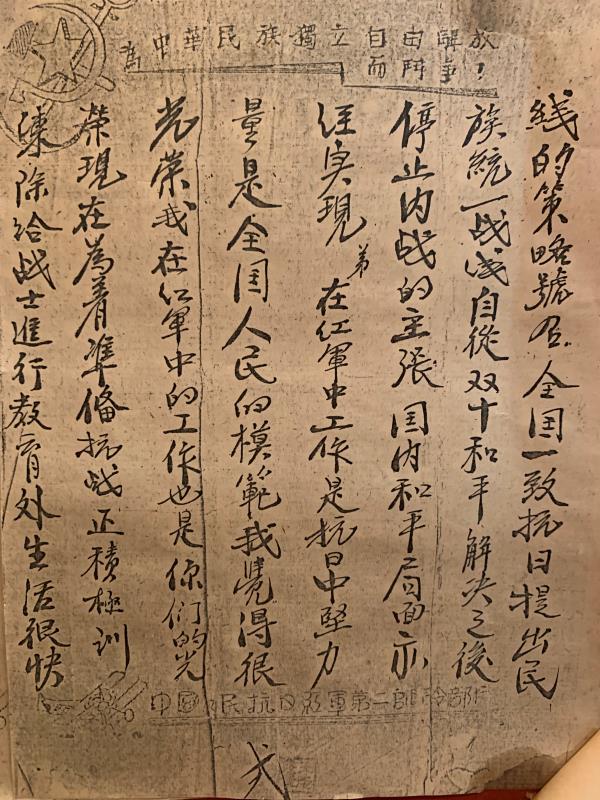 為中華民族獨立自由解放
而鬥爭！
线的策略號召全国一致抗日提出民
族統一战线自從双十和平解决之後
停止内战的主张国内和平局面亦
经实現弟在红軍中工作是抗日中堅力
量是全国人民的模範我覺得很
光荣我在红軍中的工作也是你们的光
荣現在為着準備抗战正積極训
练除给战士進行教育外生活很快
中國人民抗日紅軍第二部
弍